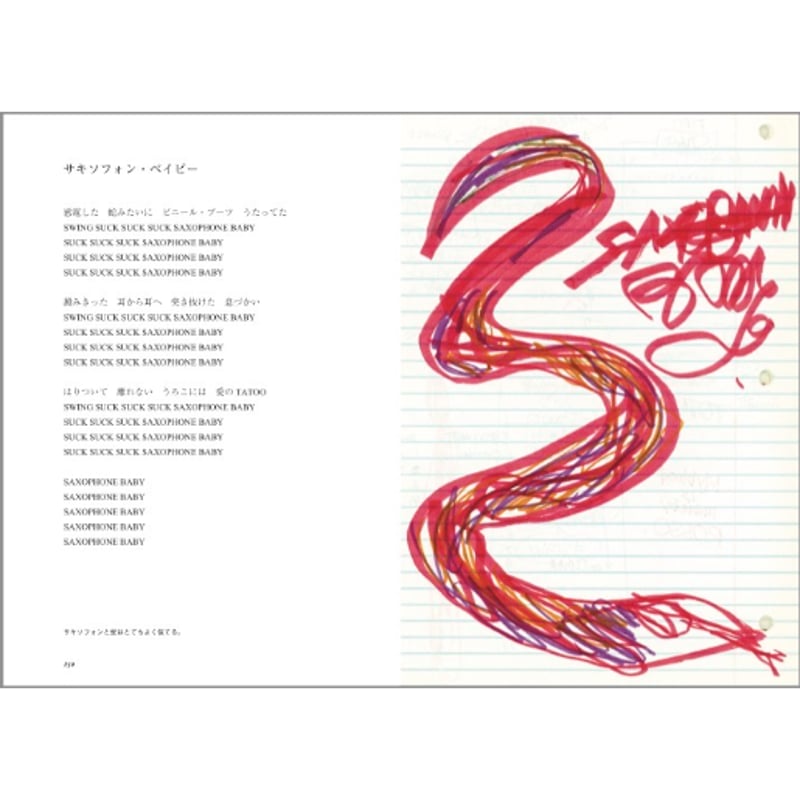 サキソフォン・ベイビー
感電した　蛇みたいに　ビニール・ブーツ　うたってた
SWING SUCK SUCK SUCK SAXOPHONE BABY
SUCK SUCK SUCK SAXOPHONE BABY
SUCK SUCK SUCK SAXOPHONE BABY
SUCK SUCK SUCK SAXOPHONE BABY
耳から耳へ　突き抜けた　息づかい
SWING SUCK SUCK SUCK SAXOPHONE BABY
SUCK SUCK SUCK SAXOPHONE BABY
SUCK SUCK SUCK SAXOPHONE BABY
SUCK SUCK SUCK SAXOPHONE BABY
はりついて　離れない　うろこには　愛のTATOO
SWING SUCK SUCK SUCK SAXOPHONE BABY
SUCK SUCK SUCK SAXOPHONE BABY
SUCK SUCK SUCK SAXOPHONE BABY
SUCK SUCK SUCK SAXOPHONE BABY
SAXOPHONE BABY
SAXOPHONE BABY
SAXOPHONE BABY
SAXOPHONE BABY
SAXOPHONE BABY
サキソフォンと蛇はとてもよく似てる。